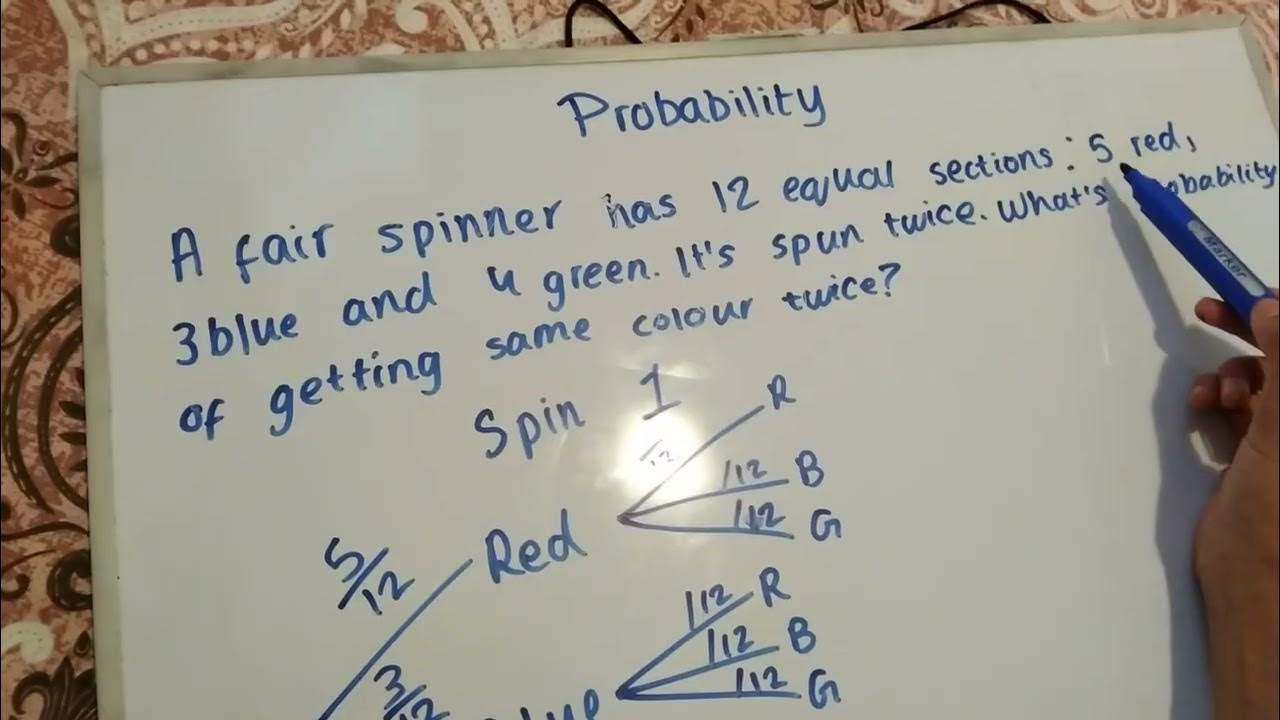 Probability
A fair spinner has 12 equal sections: 5 red,
3 blue and 4 green. It's spun twice. What's
of getting same colour twice?
Spin 1
R
/12
/12 B
/12 G
Red
5/12
/12 R
/12 B
/12 G
3/12
Marker